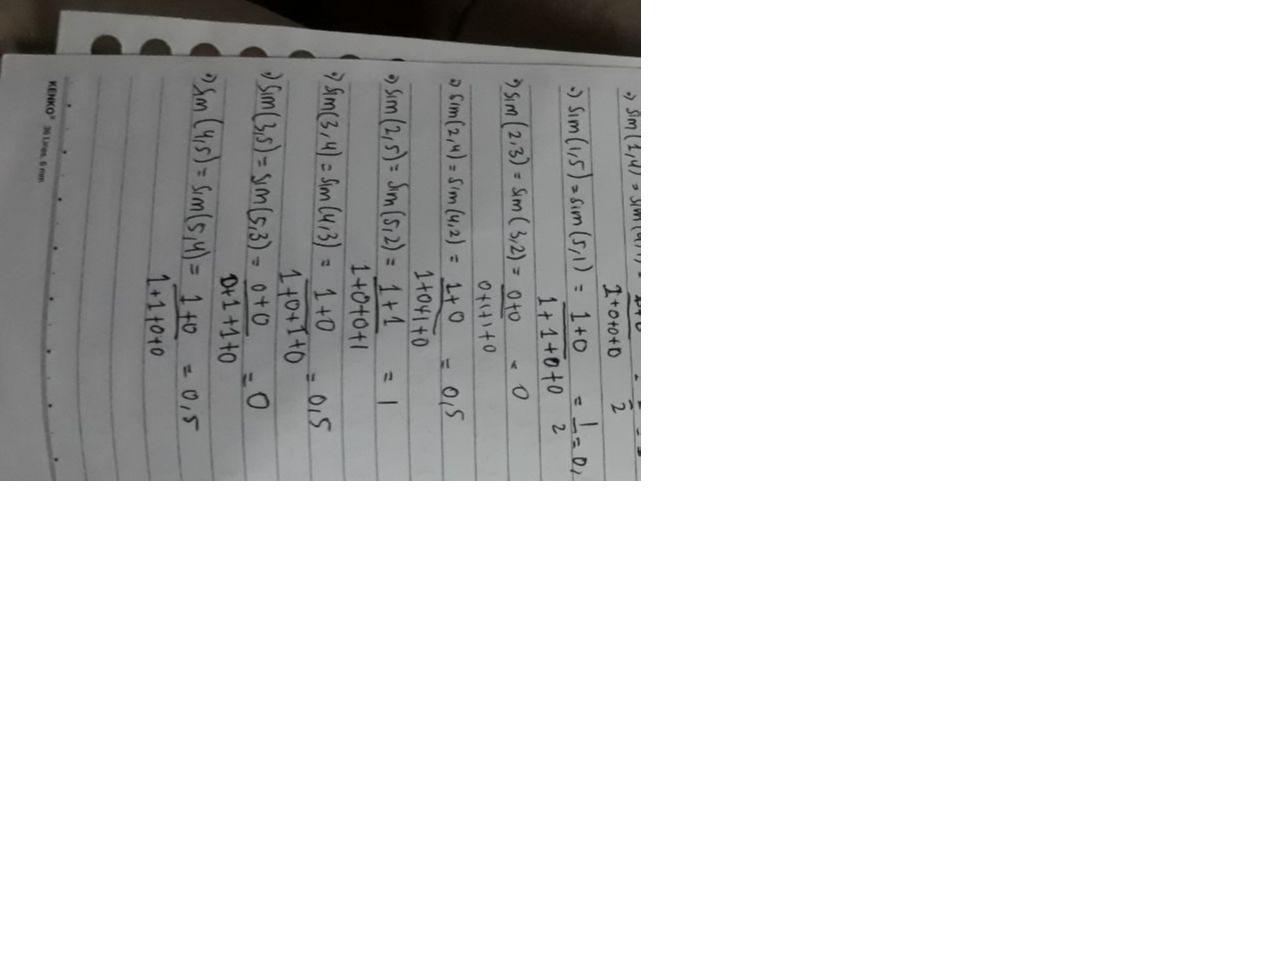 •) sim(1,4) = sim(4,1) = 1+0
1+0+0+0 2
•) sim(1,5) = sim(5,1) = 1+0 = 1 = 0,
1+1+0+0 2
•) sim(2,3) = sim(3,2) = 0+0 = 0
0+1+1+0
•) sim(2,4) = sim(4,2) = 1+0 = 0,5
1+0+1+0
•) sim(2,5) = sim(5,2) = 1+1 = 1
1+0+0+1
•) sim(3,4) = sim(4,3) = 1+0 = 0,5
1+0+1+0
•) sim(3,5) = sim(5,3) = 0+0 = 0
0+1+1+0
•) sim(4,5) = sim(5,4) = 1+0 = 0,5
1+1+0+0
KENKO® 36 Lines, 6 mm